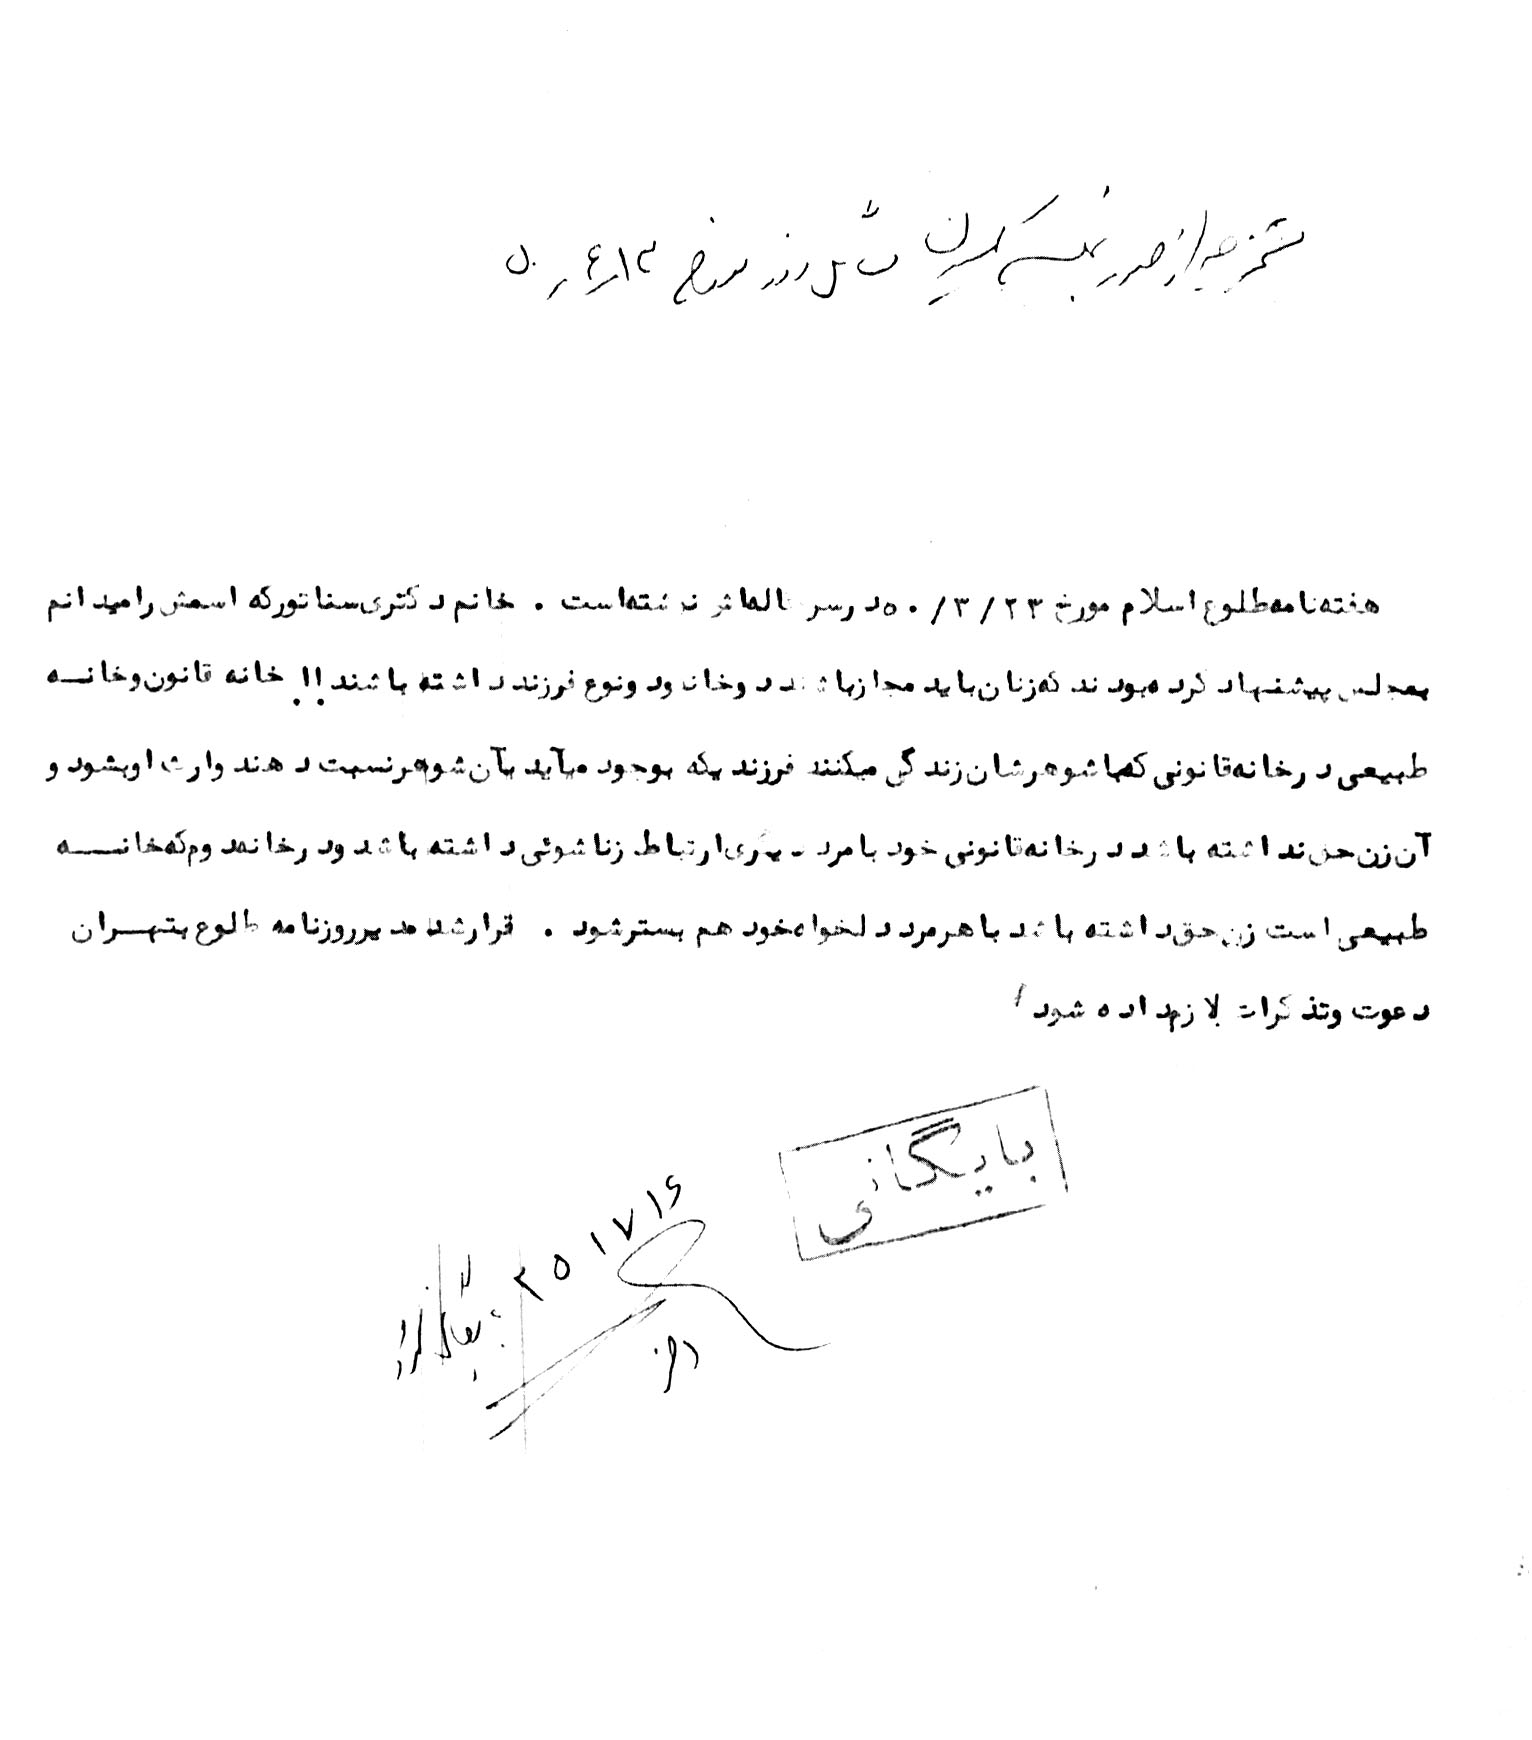 مستخرجه از صورتجلسه کمیسیون مسائل روز مورخ ۱۳ر۴ر۵۰
هفته‌نامه طلوع اسلام مورخ ۲۳/۳/۵۰ در سرمقاله‌اش نوشته‌است . خانم دکتری سناتور که اسمش را میدانم
بمجلس پیشنهاد کرده بودند که زنان باید مجاز باشند دو خانه و دو نوع فرزند داشته باشند !! خانه قانون و خانــه
طبیعی در خانه قانونی که با شوهرشان زندگی میکنند فرزندیکه بوجود میآید بآن شوهر نسبت دهند وارث او بشود و
آن زن حق نداشته باشد در خانه قانونی خود با مرد دیگری ارتباط زناشوئی داشته باشد و در خانه دوم که خانــه
طبیعی است زن حق داشته باشد با هر مرد دلخواه خود هم بستر شود . قرار شد مدیر روزنامه طلوع بتهــران
دعوت و تذکرات لازم داده شود /
بایگانی
۳۵۱۷۱۶